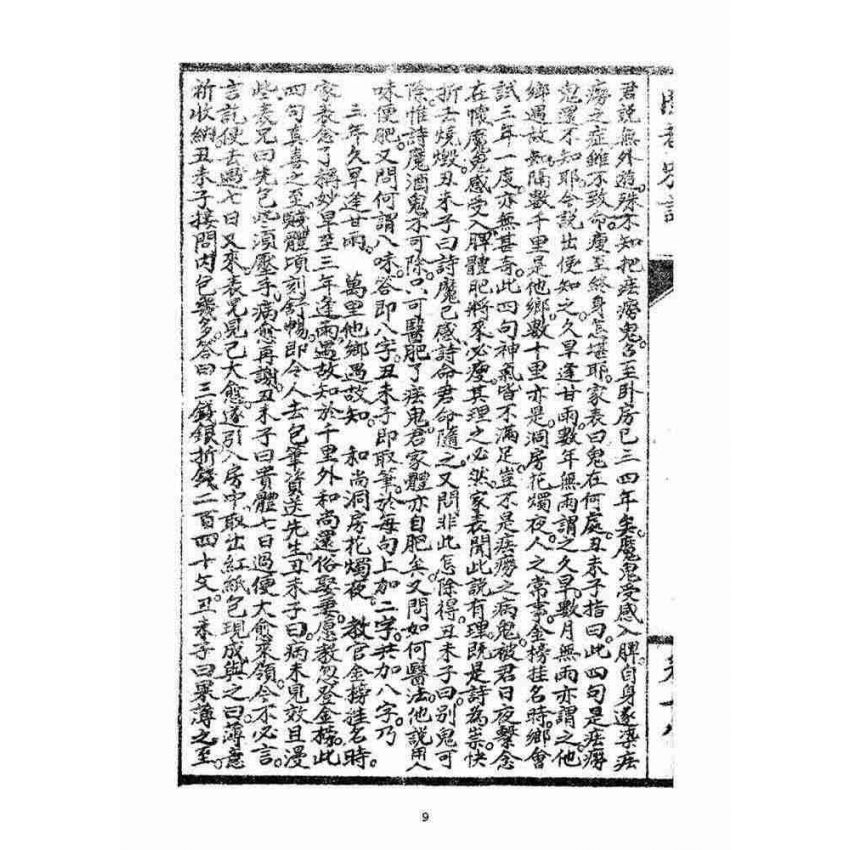 君說無外遊殊不知把疟痨鬼召至卧房已三四年矣魔鬼受感入脾自身遂染疟
痨之症雖不致命瘦至終身怎堪耶家表曰鬼在何處丑未子指曰此四句是疟痨
鬼還不知耶舍說出便知之久旱逢甘雨數年無雨謂之久旱數月無雨亦謂之他
鄉遇故知隔數千里是他鄉數十里亦是洞房花燭夜人之常事金榜挂名時鄉會
試三年一度亦無甚奇此四句神氣皆不滿足豈不是疟痨之病鬼被君日夜繫念
在懷魔鬼感受入脾體肥將來必瘦其理之必然家表聞此說有理既是詩為祟快
折去燒燬丑未子曰詩魔已感詩命君命隨之又問非此怎除得丑未子曰別鬼可
除惟詩魔酒鬼不可除只可醫肥了疟鬼君家體亦自肥矣又問如何醫法他說用八
味便肥又問何謂八味答即八字丑未子即取筆於每句上加二字共加八字乃
三年久旱逢甘雨 萬里他鄉遇故知 和尚洞房花燭夜 教官金榜挂名時
家表念了稱妙旱至三年逢雨遇故知於千里外和尚還俗娶妻愿教忽登金榜此
四句真喜之至賤體頃刻舒暢即令人去包筆資送先生丑未子曰病未見效且漫
些表兄曰先包些須壓手病愈再謝丑未子曰貴體七日過便大愈來領今不必言
言訖便去過七日又來表兄見已大愈遂引入房中取出紅紙包現成與之曰薄意
祈收納丑未子接問內包幾多答曰三錢銀折錢二百四十文丑未子曰果薄之至
9